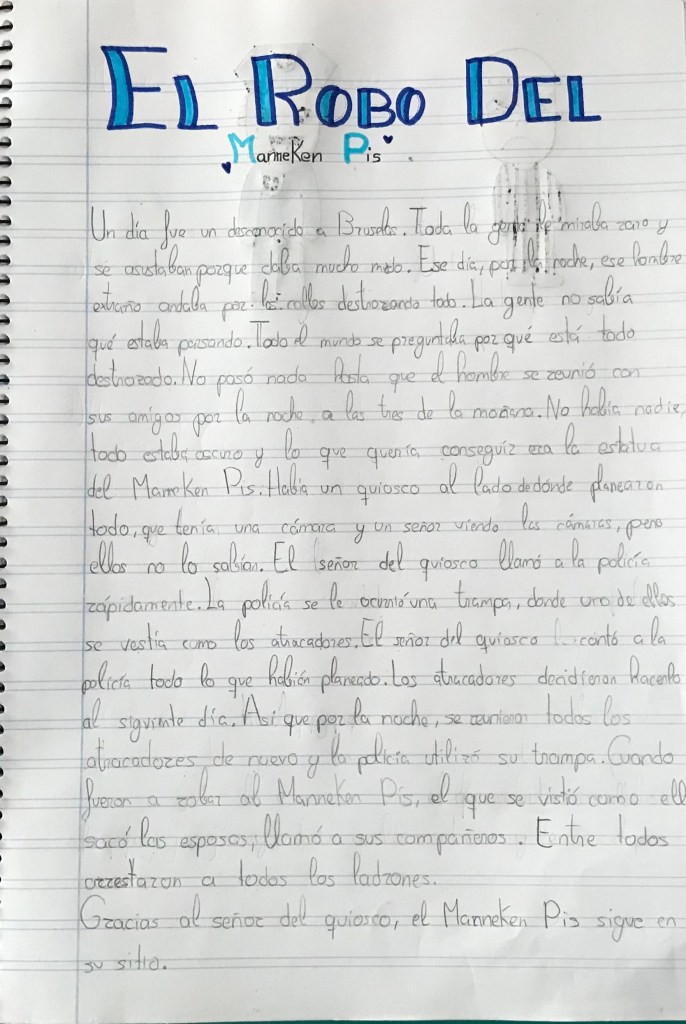 EL ROBO DEL
Manneken Pis.
Un día fue un desconocido a Bruselas. Toda la gente le miraba raro y
se asustaban porque daba mucho miedo. Ese día, por la noche, ese hombre
extraño andaba por las calles destrozando todo. La gente no sabía
qué estaba pasando. Todo el mundo se preguntaba por qué está todo
destrozado. No pasó nada hasta que el hombre se reunió con
sus amigos por la noche, a las tres de la mañana. No había nadie,
todo estaba oscuro y lo que quería conseguir era la estatua
del Manneken Pis. Había un quiosco al lado de dónde planearon
todo, que tenía una cámara y un señor viendo las cámaras, pero
ellos no lo sabían. El señor del quiosco llamó a la policía
rápidamente. La policía se le ocurrió una trampa, donde uno de ellos
se vestía como los atracadores. El señor del quiosco contó a la
policía todo lo que habían planeado. Los atracadores decidieron hacerlo
al siguiente día. Asi que por la noche, se reunieron todos los
atracadores de nuevo y la policía utilizó su trampa. Cuando
fueron a robar al Manneken Pis, el que se vistió como ell
sacó las esposas, llamó a sus compañeros. Entre todos
arrestaron a todos los ladrones.
Gracias al señor del quiosco, el Manneken Pis sigue en
su sitio.